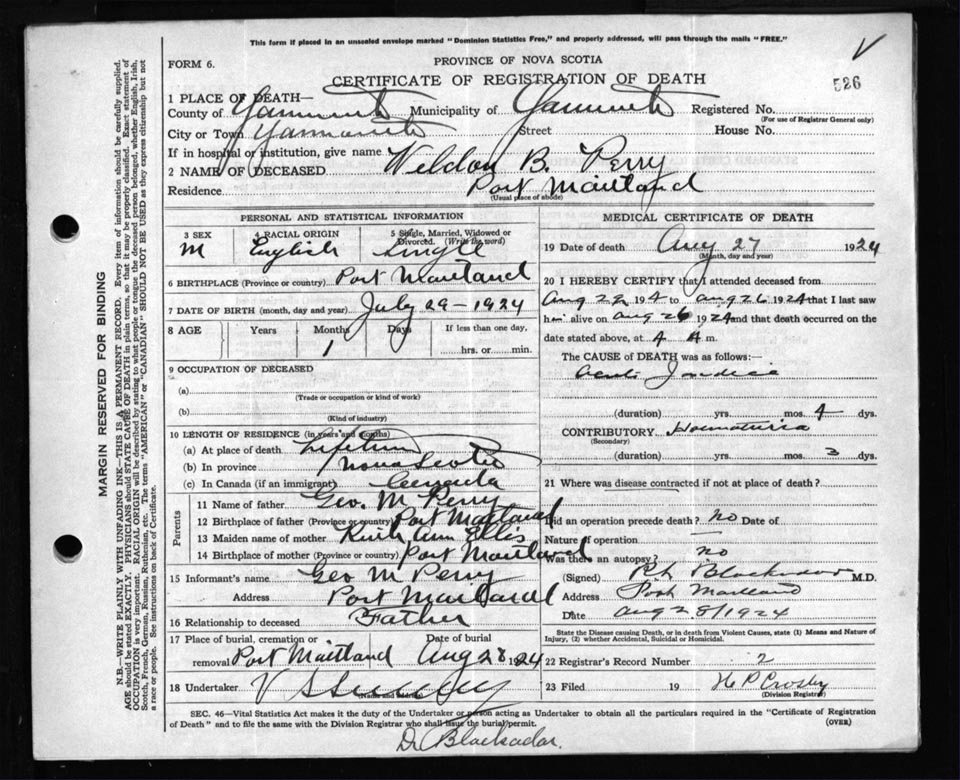 This form if placed in an unsealed envelope marked "Dominion Statistics Free," and properly addressed, will pass through the mails "FREE."
V
FORM 6.
PROVINCE OF NOVA SCOTIA
CERTIFICATE OF REGISTRATION OF DEATH
526
1 PLACE OF DEATH—
County of Yarmouth Municipality of Yarmouth Registered No.
(For use of Registrar General only)
City or Town Yarmouth Street House No.
If in hospital or institution, give name
2 NAME OF DECEASED Weldon B. Perry
Residence Port Maitland
(Usual place of abode)
PERSONAL AND STATISTICAL INFORMATION
3 SEX 4 RACIAL ORIGIN 5 Single, Married, Widowed or Divorced. (Write the word)
M English Single
6 BIRTHPLACE (Province or country) Port Maitland
7 DATE OF BIRTH (month, day and year) July 29-1924
8 AGE Years Months Days If less than one day,
1 hrs. or min.
9 OCCUPATION OF DECEASED
(a)
(Trade or occupation or kind of work)
(b)
(Kind of industry)
10 LENGTH OF RESIDENCE (in years and months)
(a) At place of death Lifetime
(b) In province Nova Scotia
(c) In Canada (if an immigrant) Canada
Parents
11 Name of father Geo. M Perry
12 Birthplace of father (Province or country) Port Maitland
13 Maiden name of mother Ann Ellis
14 Birthplace of mother (Province or country) Port Maitland
15 Informant's name Geo M Perry
Address Port Maitland
16 Relationship to deceased Father
17 Place of burial, cremation or removal Port Maitland Date of burial Aug 28 1924
18 Undertaker V S
MEDICAL CERTIFICATE OF DEATH
19 Date of death Aug 27 1924
(Month, day and year)
20 I HEREBY CERTIFY that I attended deceased from
Aug 22 1924 to Aug 26 1924 that I last saw
him alive on Aug 26 1924 and that death occurred on the
date stated above, at 4 A m.
The CAUSE OF DEATH was as follows:—
(duration) yrs. mos. 4 dys.
CONTRIBUTORY
(Secondary)
(duration) yrs. mos. 3 dys.
21 Where was disease contracted if not at place of death?
Did an operation precede death? No Date of
Nature of operation
Was there an autopsy? no
(Signed) M.D.
Address Port Maitland
Date Aug 28/1924
State the Disease causing Death, or in death from Violent Causes, state (1) Means and Nature of
Injury, (2) whether Accidental, Suicidal or Homicidal.
22 Registrar's Record Number 2
23 Filed 19 H P Crosby
(Division Registrar)
SEC. 46—Vital Statistics Act makes it the duty of the Undertaker or person acting as Undertaker to obtain all the particulars required in the "Certificate of Registration
of Death" and to file the same with the Division Registrar who shall issue the burial permit.
(OVER)
Dr Blackadar.
MARGIN RESERVED FOR BINDING
N.B.—WRITE PLAINLY WITH UNFADING INK—THIS IS A PERMANENT RECORD. Every item of information should be carefully supplied.
AGE should be stated EXACTLY. PHYSICIANS should STATE CAUSE OF DEATH in plain terms, so that it may be properly classified. Exact statement of
OCCUPATION is very important. RACIAL ORIGIN will be described by stating to what people or tongue the deceased person belonged, whether English, Irish,
Scotch, French, German, Russian, Ruthenian, etc. The terms "AMERICAN" or "CANADIAN" SHOULD NOT BE USED as they express citizenship but not
a race or people. See instructions on back of Certificate.